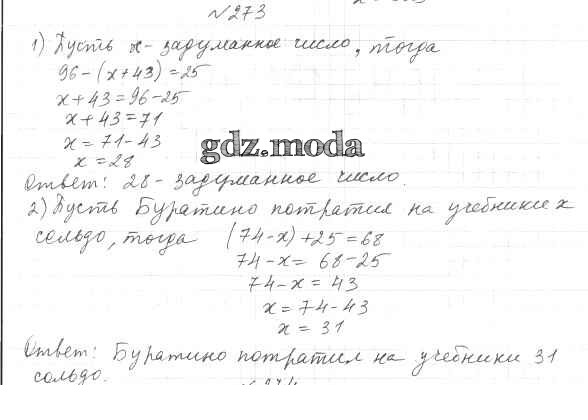 №273
1) Пусть х- задуманное число, тогда
96-(х+43)=25
х+43=96-25
х+43=71
х=71-43
х=28
gdz.moda
Ответ: 28- задуманное число.
2) Пусть Буратино потратил на учебники х
сольдо, тогда (74-х)+25=68
74-х= 68-25
74-х= 43
х=74-43
х= 31
Ответ: Буратино потратил на учебники 31
сольдо.